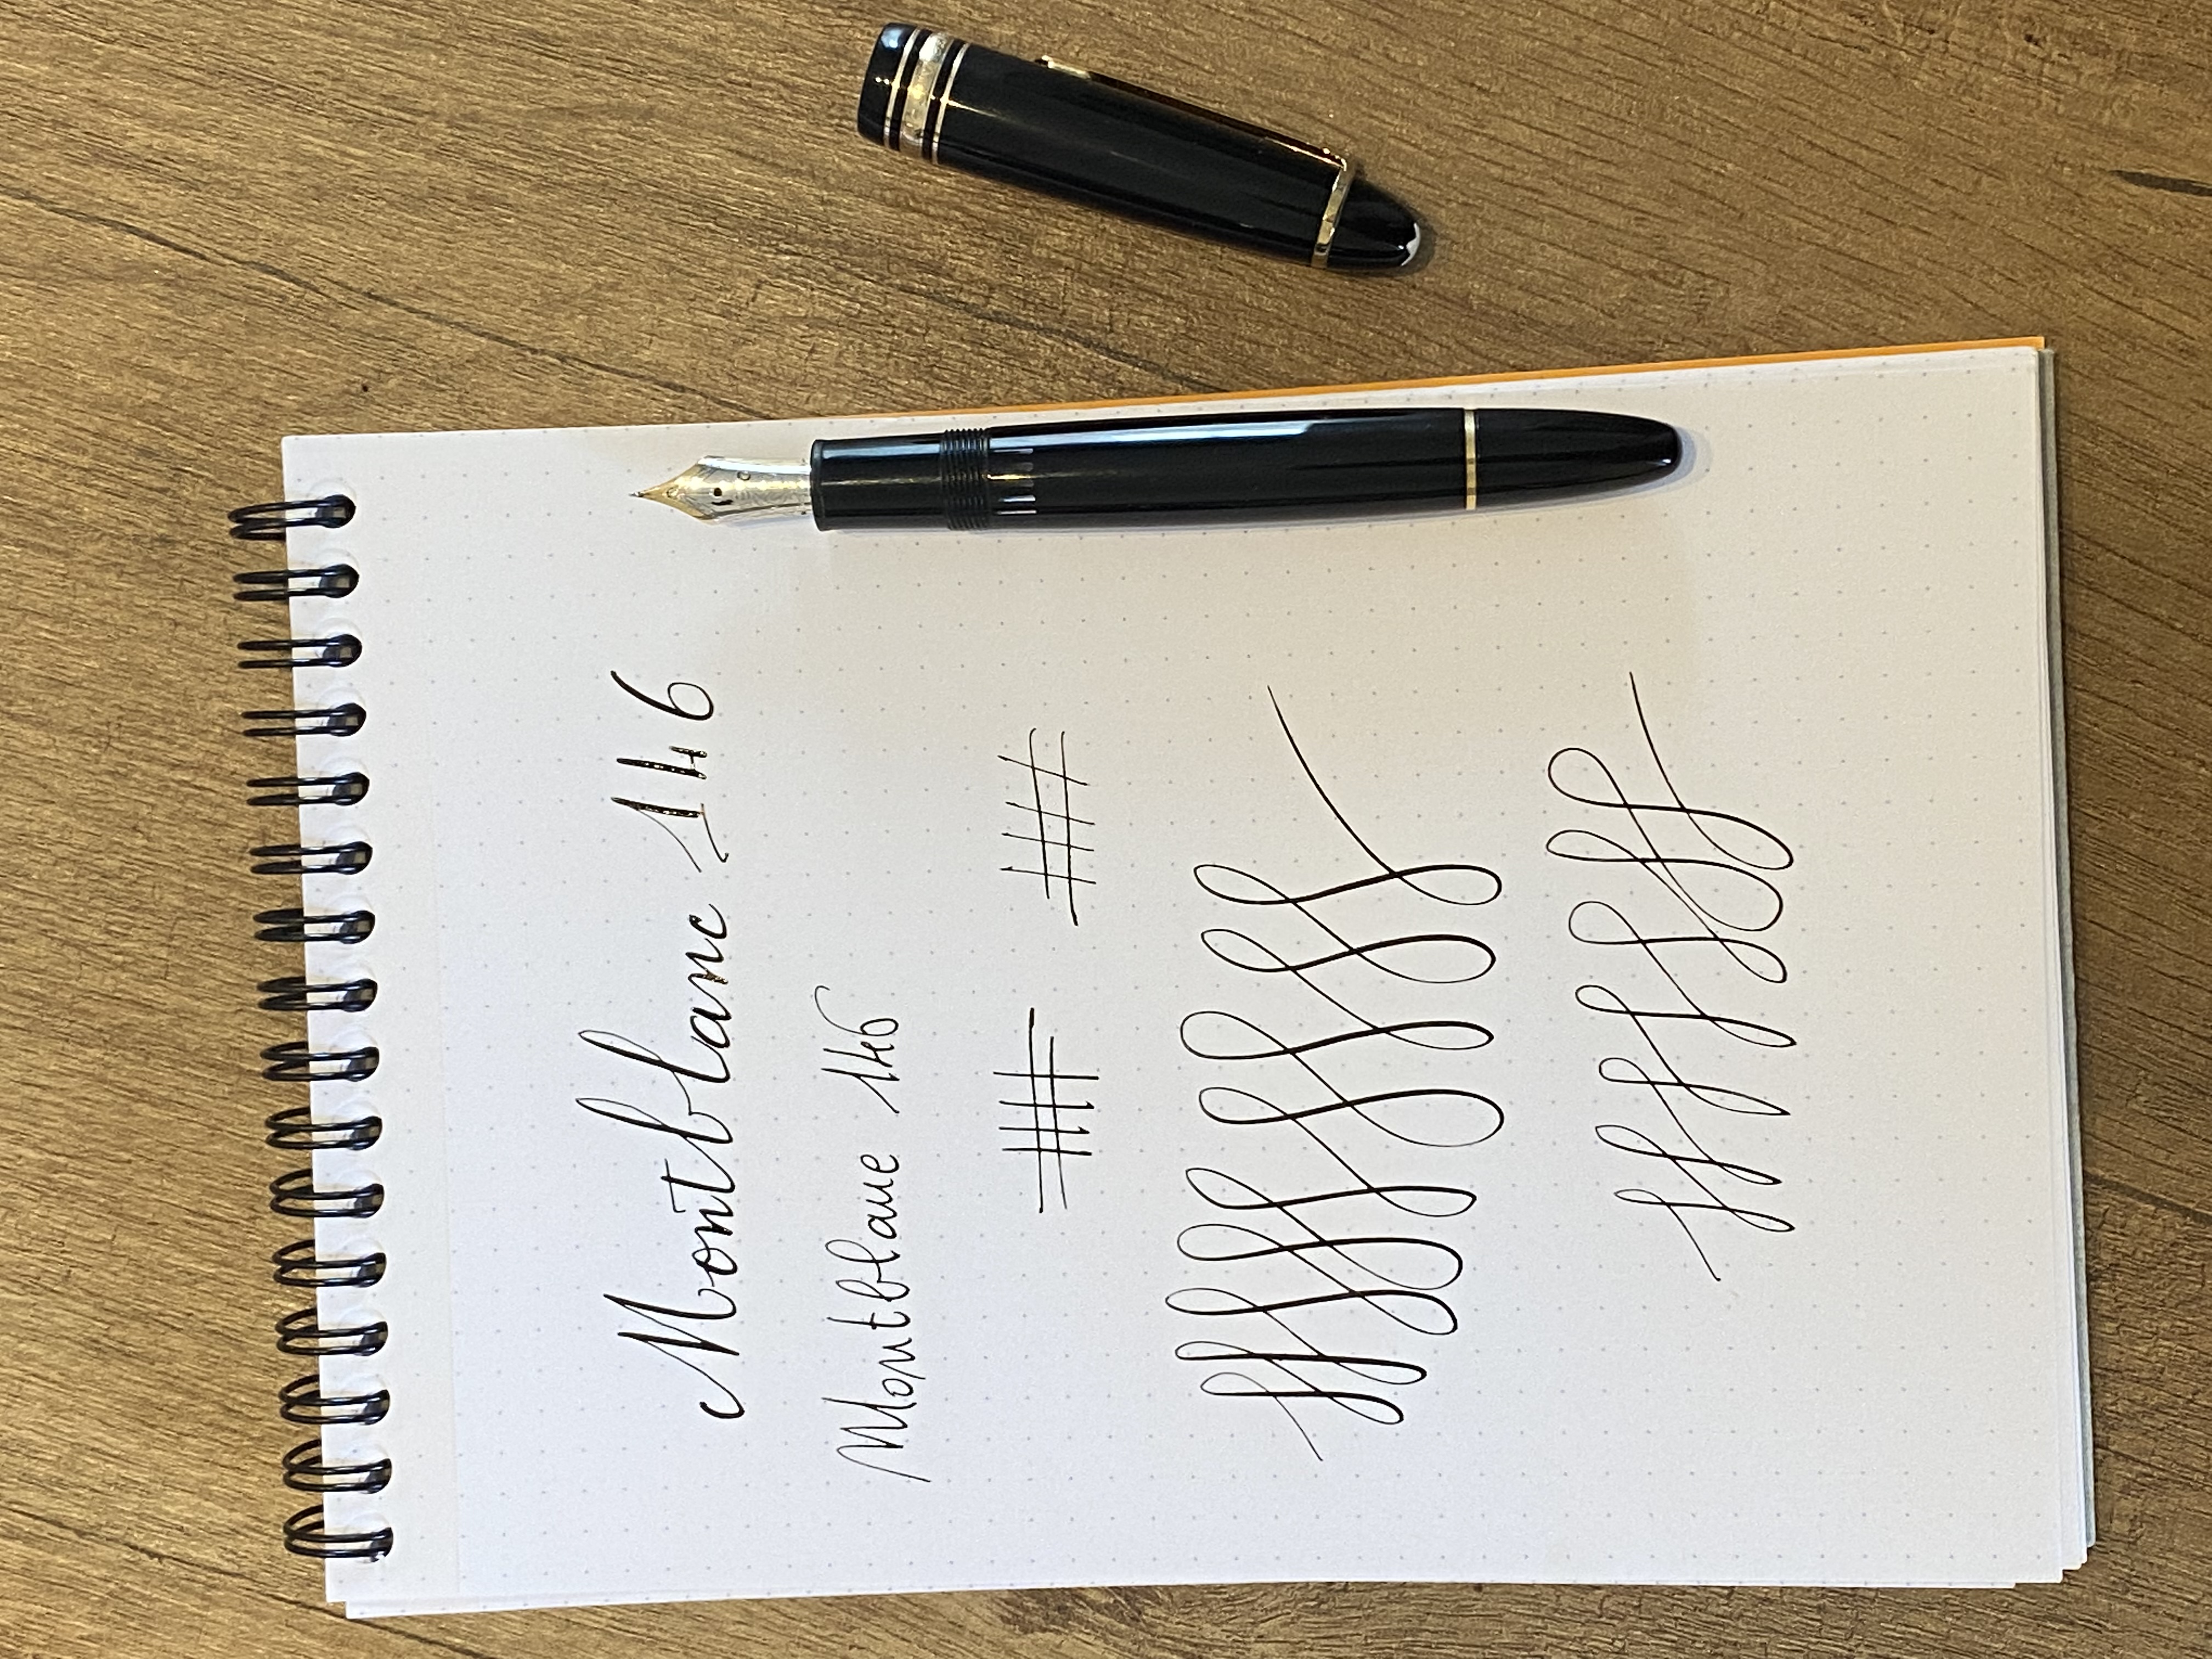 Montblanc 146
Montblanc 146